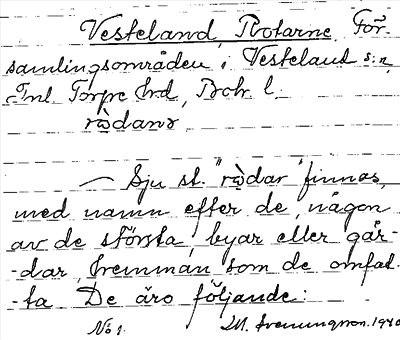 Vesteland, Rotarne, För-
samlingsområden i Vesteland s:n,
Inl. Torpe hrd, Boh. l.
rọ̀danɤ
— Sju st. "rọ̀dar" finnas,
med namn efter de, någon
av de största, byar eller går-
-dar, hemman som de omfat-
-ta. De äro följande:
No 1. M. 1940